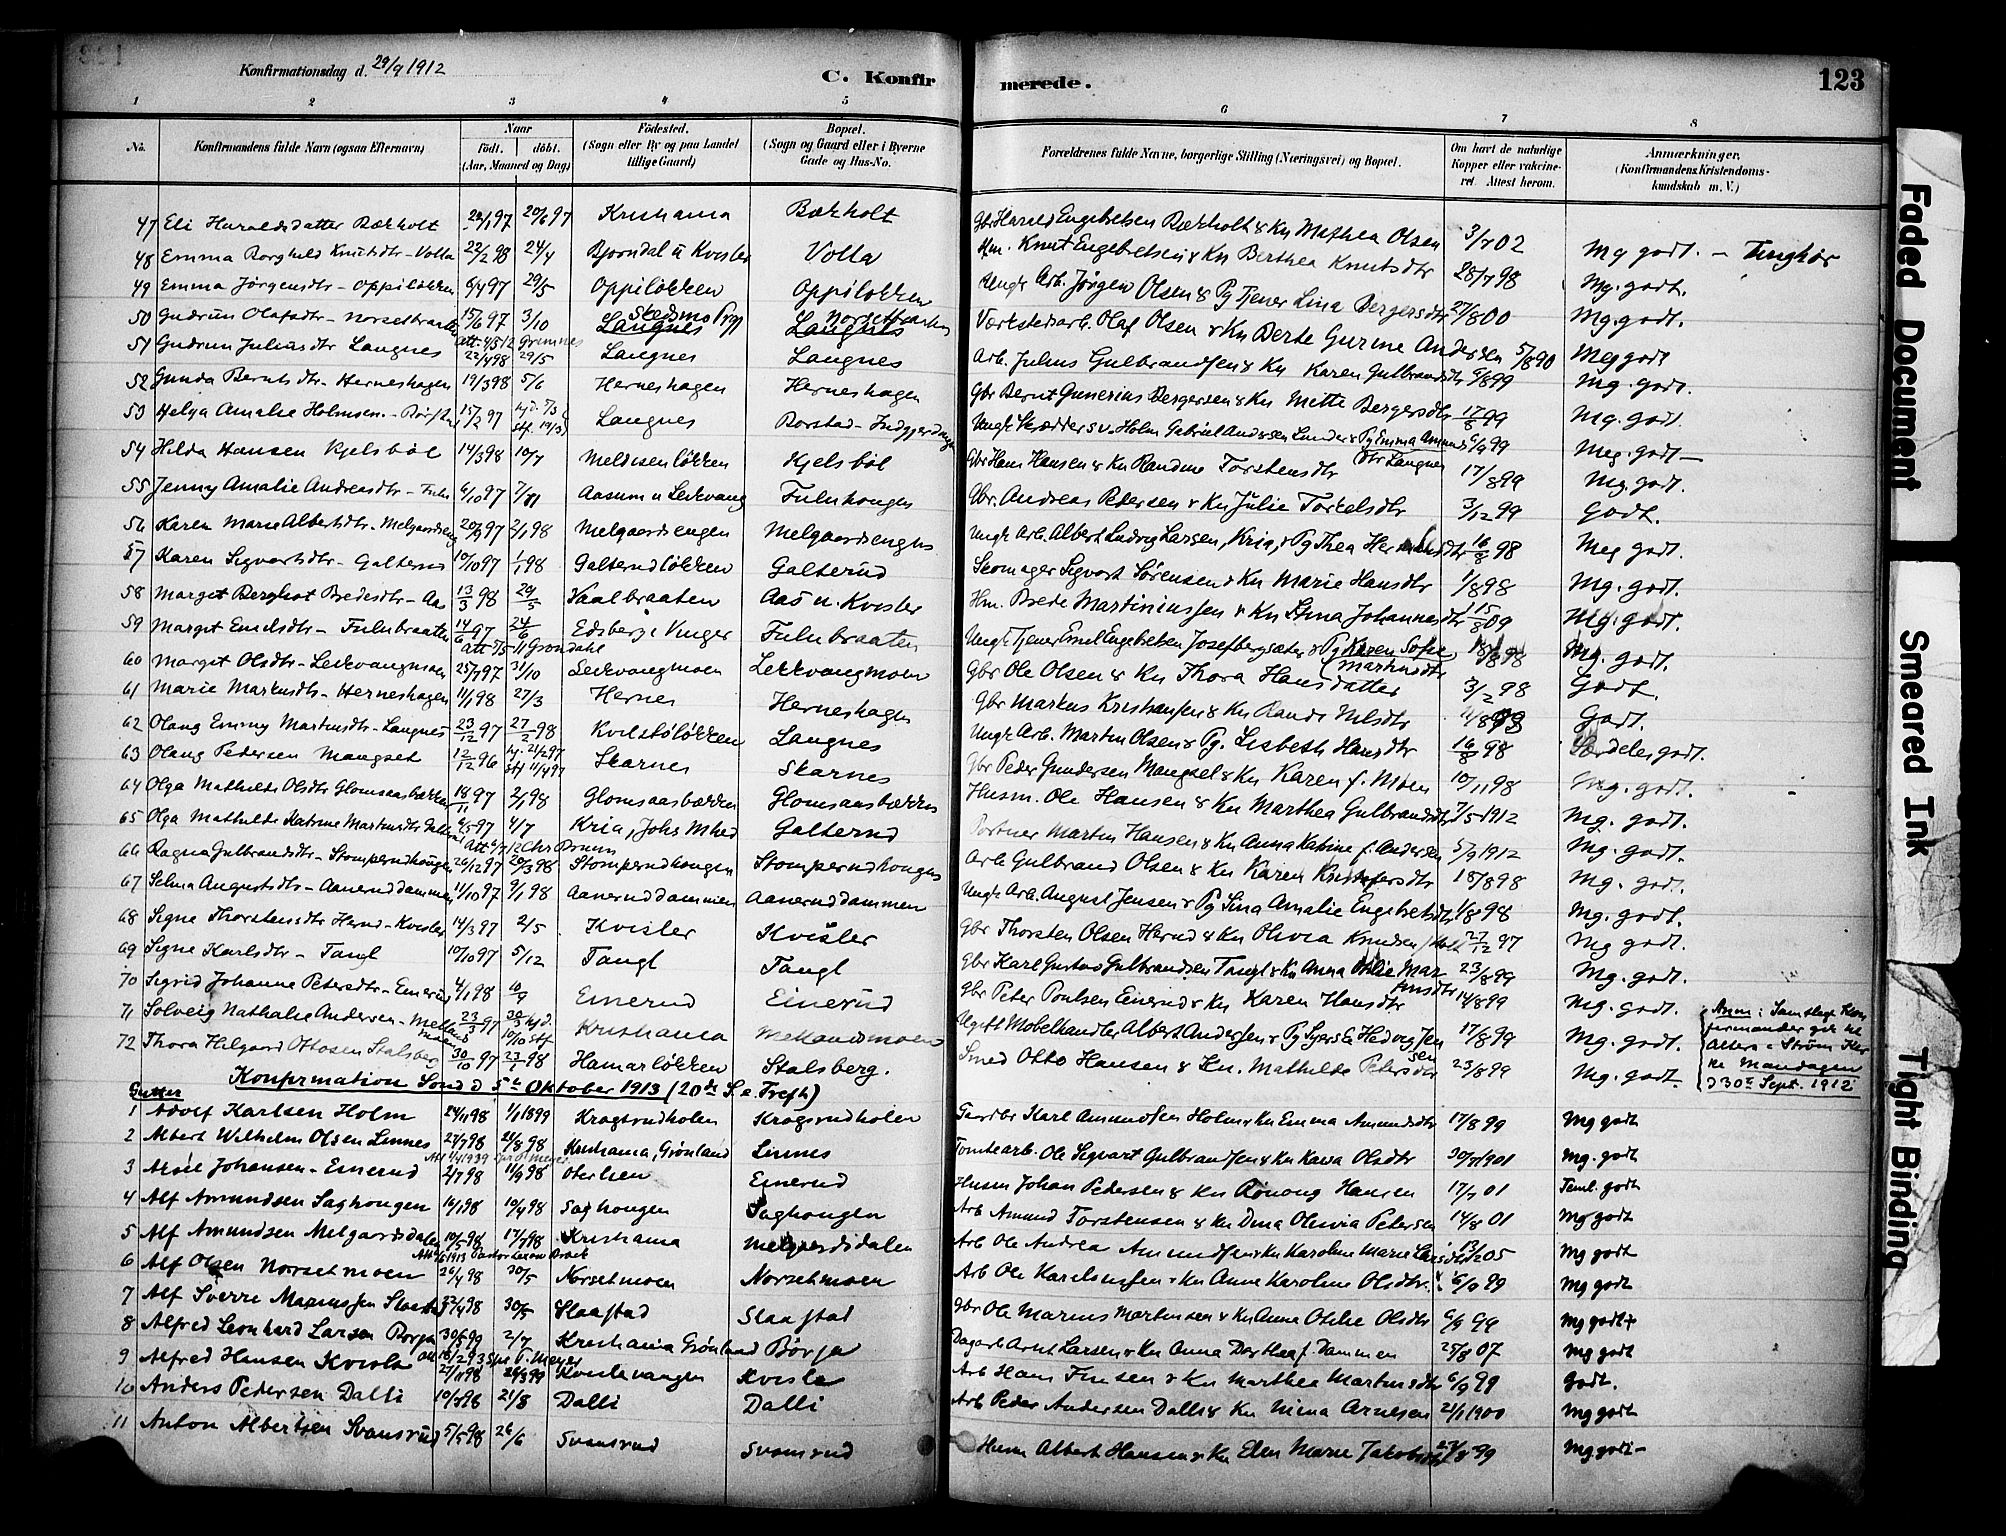 Konfirmationsdag d. 29/9 1912
C. Konfir
merede.
123
1 2 3 4 5 6 7 8
No.
Konfirmandens fulde Navn (ogsaa Efternavn)
Naar
födt. döbt.
(Aar, Maaned og Dag)
Födested.
(Sogn eller By og paa Landet
tillige Gaard)
Bopæl.
(Sogn og Gaard eller i Byerne
Gade og Hus-No.
Forældrenes fulde Navne, borgerlige Stilling (Næringsvei) og Bopæl.
Om havt de naturlige
Kopper eller vakcine-
ret. Attest herom.
Anmærkninger.
(Konfirmandens Kristendoms-
kundskab m. V.)
47 Eli Haraldsdatter Bækholt 20/6 97 Kristiania Bækholt Gbr Harald Engebretsen Bækholt & Kn Mathea Olsen 3/7 02
48 Emma Borghild Knutsdtr - Volla 22/2 98 24/4 Bjørndal u Kvisler Volla Hm. Knut Engebretsen & Kn Berthea Knutsdtr 28/7 98 Mg godt. - Tinghør
49 Emma Jørgensdtr - Oppiløkken 6/4 97 29/5 Oppiløkken Oppiløkken Ungk. Arb. Jørgen Olsen & Pg Tjener Lina Bergersdtr 27/8 00 Mg. godt.
50 Gudrun Olafsdtr - Norsetbraaten 15/6 97 3/10 Skedsmo Prgj Langnes Norsetbraaten Langnes Værkstedsarb. Olaf Olsen & Kn Berte Gurine Andersen 5/8 90 Mg. godt.
51 Gudrun Juliusdtr Langnes 22/4 98 29/5 Langnes Langnes Arb. Julius Gulbrandsen & Kn Karen Gulbrandsdtr 6/8 99 Meg godt
52 Gunda Berntsdtr - Herneshagen 19/3 98 5/6 Herneshagen Herneshagen Gbr Bernt Gunerius Bergersen & Kn Mette Bergersdtr 17/8 99 Mg. godt.
53 Helga Amalie Holmsen - 15/2 97 Langnes Rorstad - Ungk. Skræddersv. Holm Gabriel Andersen Lunder & Pg Emma Amunds dtr Langnes 6/9 99 Mg. godt.
54 Hilda Hansen Kjelsböl 14/3 98 10/7 Meldisenløkken Kjelsböl Gbr Hans Hansen & Kn Randine Torstensdtr 17/8 99 Meg. godt -
55 Jenny Amalie Andreasdtr - Fulu 6/10 97 7/11 Aasum u Leirvang Fuluhougen Gbr. Andreas Pedersen & Kn Julie Torkelsdtr 3/12 99 Mg. godt.
56 Karen Marie Albertsdtr - Melgaardseng 20/9 97 2/1 98 Melgaardsengen Melgaardsengen Ungk Arb. Albert Ludvig Larsen, Kria, & Pg Thea Hermansdtr 16/8 98 Godt.
57 Karen Sigvartsdtr - Galterud 10/10 97 1/1 98 Galterudløkken Galterud Skomager Sigvart Sørensen & Kn Marie Hansdtr 1/8 98 Meg godt.
58 Margit Bergliot Bredesdtr - Aas 13/3 98 29/5 Vaalbraaten Aas u. Kvisler Hm. Brede Martiniussen & Kn Stina Johannesdtr 15/8 09 Mg. godt.
59 Margit Emilsdtr - Fulubraaten 14/6 97 24/6 Edsberg i Vinger Fulubraaten Ungk. Tjener Emil Engebretsen Josefbergsæter & Pg Karen Sofie Martinsdtr 18/8 98 Mg. godt.
60 Margit Olsdtr - Leirvangmoen 25/7 97 31/10 Leirvangmoen Leirvangmoen Gbr Ole Olsen & Kn Thora Hansdatter 3/2 98 Mg. godt.
61 Marie Markusdtr - Herneshagen 11/1 98 27/3 Hernes Herneshagen Gbr Markus Kristiansen & Kn Randi Nilsdtr Godt.
62 Olaug Emmy Martinsdtr - Langnes 23/12 97 27/2 98 Kvilstöløkken Langnes Ungk Arb. Martin Olsen & Pg. Lisbeth Hansdtr 16/8 98 Godt.
63 Olaug Pedersen Mangset 12/12 96 Skarnes Skarnes Gbr Peder Gundersen Mangset & Kn Karen f. Moen 10/11 98 Særdeles godt.
64 Olga Mathilde Olsdtr Glomsaasbakken 18/11 97 2/1 98 Glomsaasbakken Glomsaasbakken Husm. Ole Hansen & Kn Marthea Gulbrandsdtr 7/5 1912 Mg. godt.
65 Olga Mathilde Katrine Martinsdtr 6/5 97 4/7 Kria, Johs Mhed Galterud Portner Martin Hansen & Kn Anna Katrine f. Andersen 5/9 1912 Mg. godt.
66 Ragna Gulbrandsdtr - Stomperudhougen 26/12 97 20/3 98 Stomperudhougen Stomperudhougen Arb Gulbrand Olsen & Kn Karen Kristofersdtr 18/8 98 Mg. godt.
67 Selma Augustsdtr - Aanerud dammen 11/10 97 9/1 98 Aaneruddammen Aaneruddammen Ungk. Arb. August Jensen & Pg Lina Amalie Engebretsdtr 1/8 98 Mg. godt.
68 Signe Thorstensdtr Herud - Kvisler 14/3 97 2/5 Kvisler Kvisler Gbr Thorsten Olsen Herud & Kn Olivia Knudsen 27/12 97 Mg. godt.
69 Signe Karlsdtr - Tangl 10/10 97 5/12 Tangl Tangl Gbr Karl Gustav Gulbrandsen Tangl & Kn Anna Othilie Martinsdtr 23/8 99 Mg godt.
70 Sigrid Johanne Petersdtr - Einerud 4/1 98 Einerud Einerud Gbr Peter Poulsen Einerud & Kn Karen Hansdtr 14/8 99 Mg. godt.
71 Solveig Nathalie Andersen - Mellandsmoen 23/3 97 Kristiania Mellandsmoen Ugift Møbelhandler Albert Andersen & Pg Syerske Hedvig Jensen 17/8 99 Mg. godt.
72 Thora Helgaard Ottosen Stalsberg 30/10 97 23/1 98 Hamarløkken Stalsberg. Smed Otto Hansen & Kn. Mathilde Petersdtr 23/8 99 Mg. godt.
Anm: Samtlige Kon
firmander gik til
Alters i Strøm Kir
ke Mandagen
d 30te Sept. 1912
Konfirmation Sønd d 5te Oktober 1913 (20de S. e. Trefh)
Gutter
1 Adolf Karlsen Holm 24/11 98 1/1 1899 Kragsrudholen Kragsrudholen Gbr Karl Amundsen Holm & Kn Emma Amundsdtr 17/8 99 Mg godt
2 Albert Wilhelm Olsen Linnes 27/7 98 21/8 98 Kristiania, Grønland Linnes Tomtearb. Ole Sigvart Gulbrandsen & Kn Kaia Olsdtr 30/8 1901 Mg. godt
3 Johansen - Einerud 2/7 98 11/9 98 Oterlien Einerud Husm Johan Pedersen & Kn Rønoug Hansen 17/7 01 Teml. godt
4 Alf Amundsen Saghougen 16/1 98 10/4 98 Saghougen Saghougen Arb Amund Torstensen & Kn Dina Olivia Petersen 14/8 01 Mg godt
5 Alf Amundsen Melgaardsdalen 10/5 98 17/7 98 Kristiania Melgaardsdalen Arb Ole Andrea Amundsen & Kn Karoline Marie Larsdtr 13/12 05 Mg godt
6 Alf Olsen Norsetmoen 26/4 98 30/5 Norsetmoen Norsetmoen Arb Ole Karelinssen & Kn Anne Karoline Olsdtr 6/9 99 Mg godt
7 Alf Sverre Mariussen Slaastad 22/4 98 30/5 Slaastad Slaastad Gbr Ole Marius Martinsen & Kn Anne Othilie Olsdtr 6/9 99 Mg godt+
8 Alfred Leonhard Larsen Børja 30/5 99 2/7 Kristiania Grønland Børja Dagarb Arnt Larsen & Kn Anna Dorthea f. Dammen 25/8 07 Mg godt
9 Alfred Hansen Kvisla 27/11 98 26/3 99 Kvislavangen Kvisla Arb Hans Finsen & Kn Marthea Martinsdtr 6/9 99 Godt.
10 Anders Pedersen Dalli 10/7 98 21/8 Dalli Dalli Arb Peder Andersen Dalli & Kn Mina Arnesen 21/1 1900 Mg godt
11 Anton Albertsen Svansrud 5/5 98 26/6 Svansrud Svansrud Husm Albert Hansen & Kn Elen Marie Jakobsdtr 23/8 99 Mg godt -
Faded Document
Smeared Ink
Tight Binding